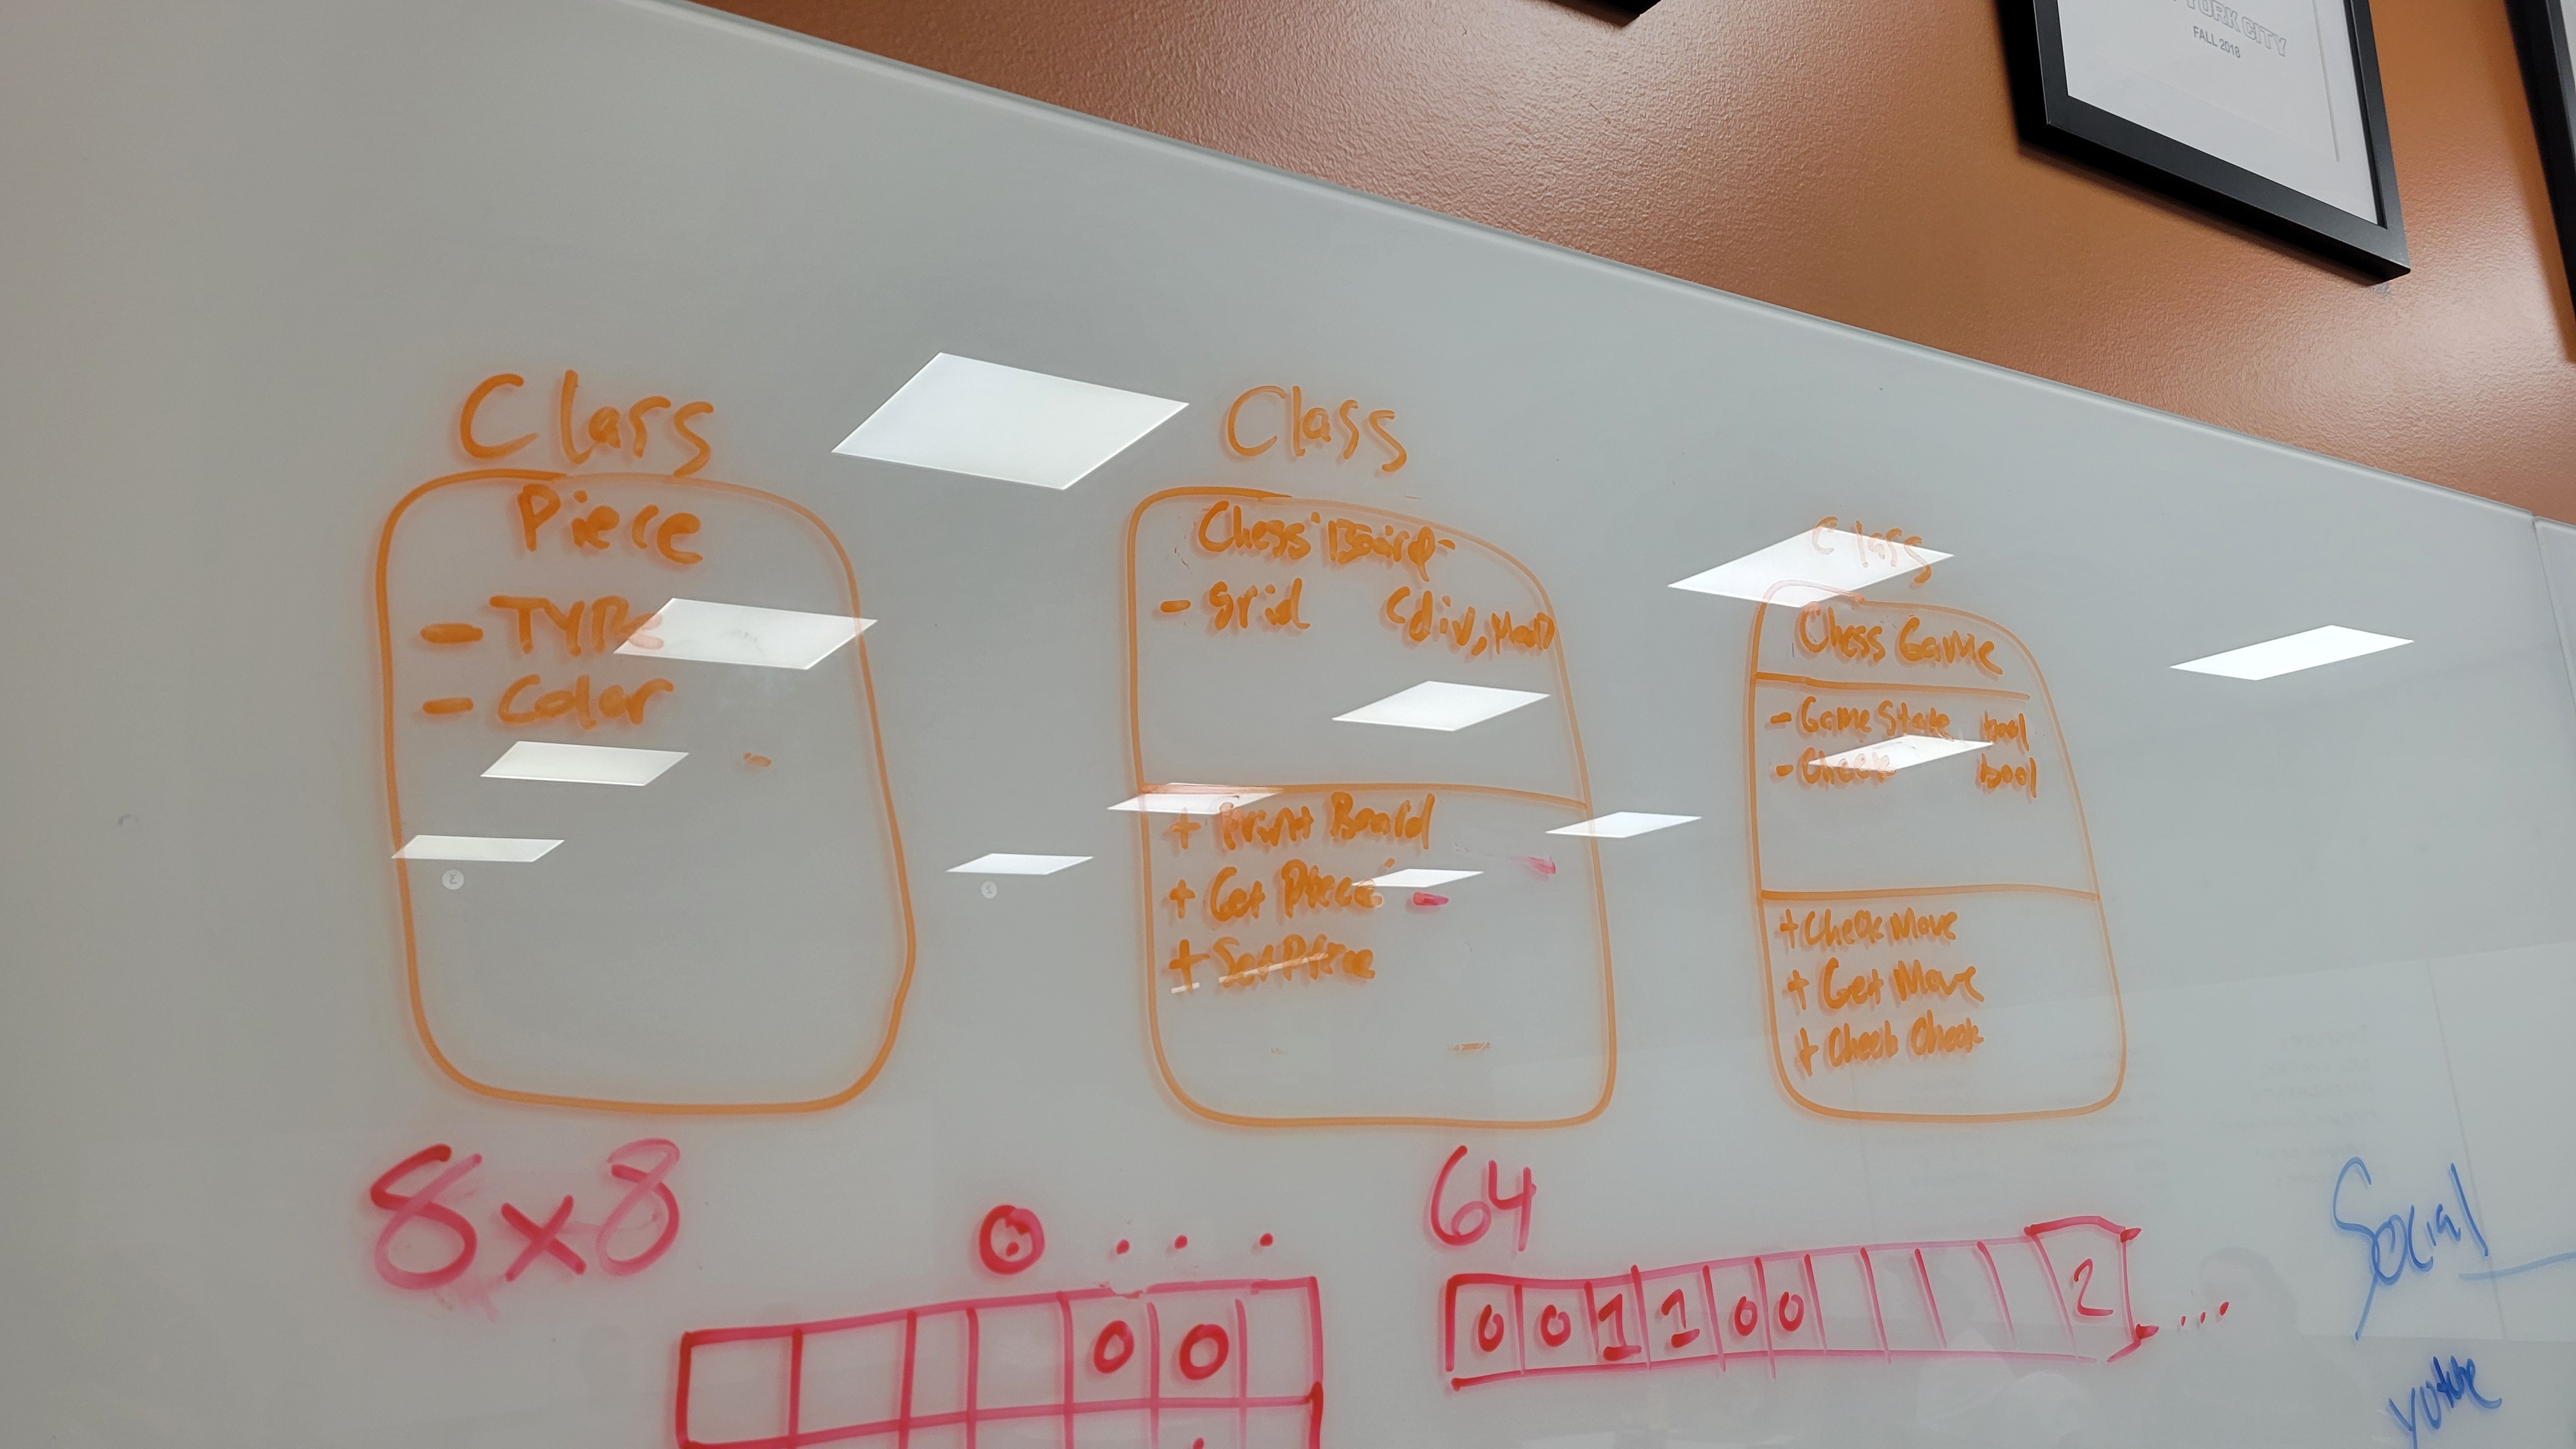 YORK CITY
FALL 2018
Class
Piece
- TYPE
- Color
Class
Chess Board
- grid (div, Mod)
+ Print Board
+ Get Piece
+ Set Piece
Class
Chess Game
- Game State bool
- Check bool
+ Check Move
+ Get Move
+ Check Check
8x8
0 . . .
0 0
64
0 0 1 1 0 0 2 ...
Social